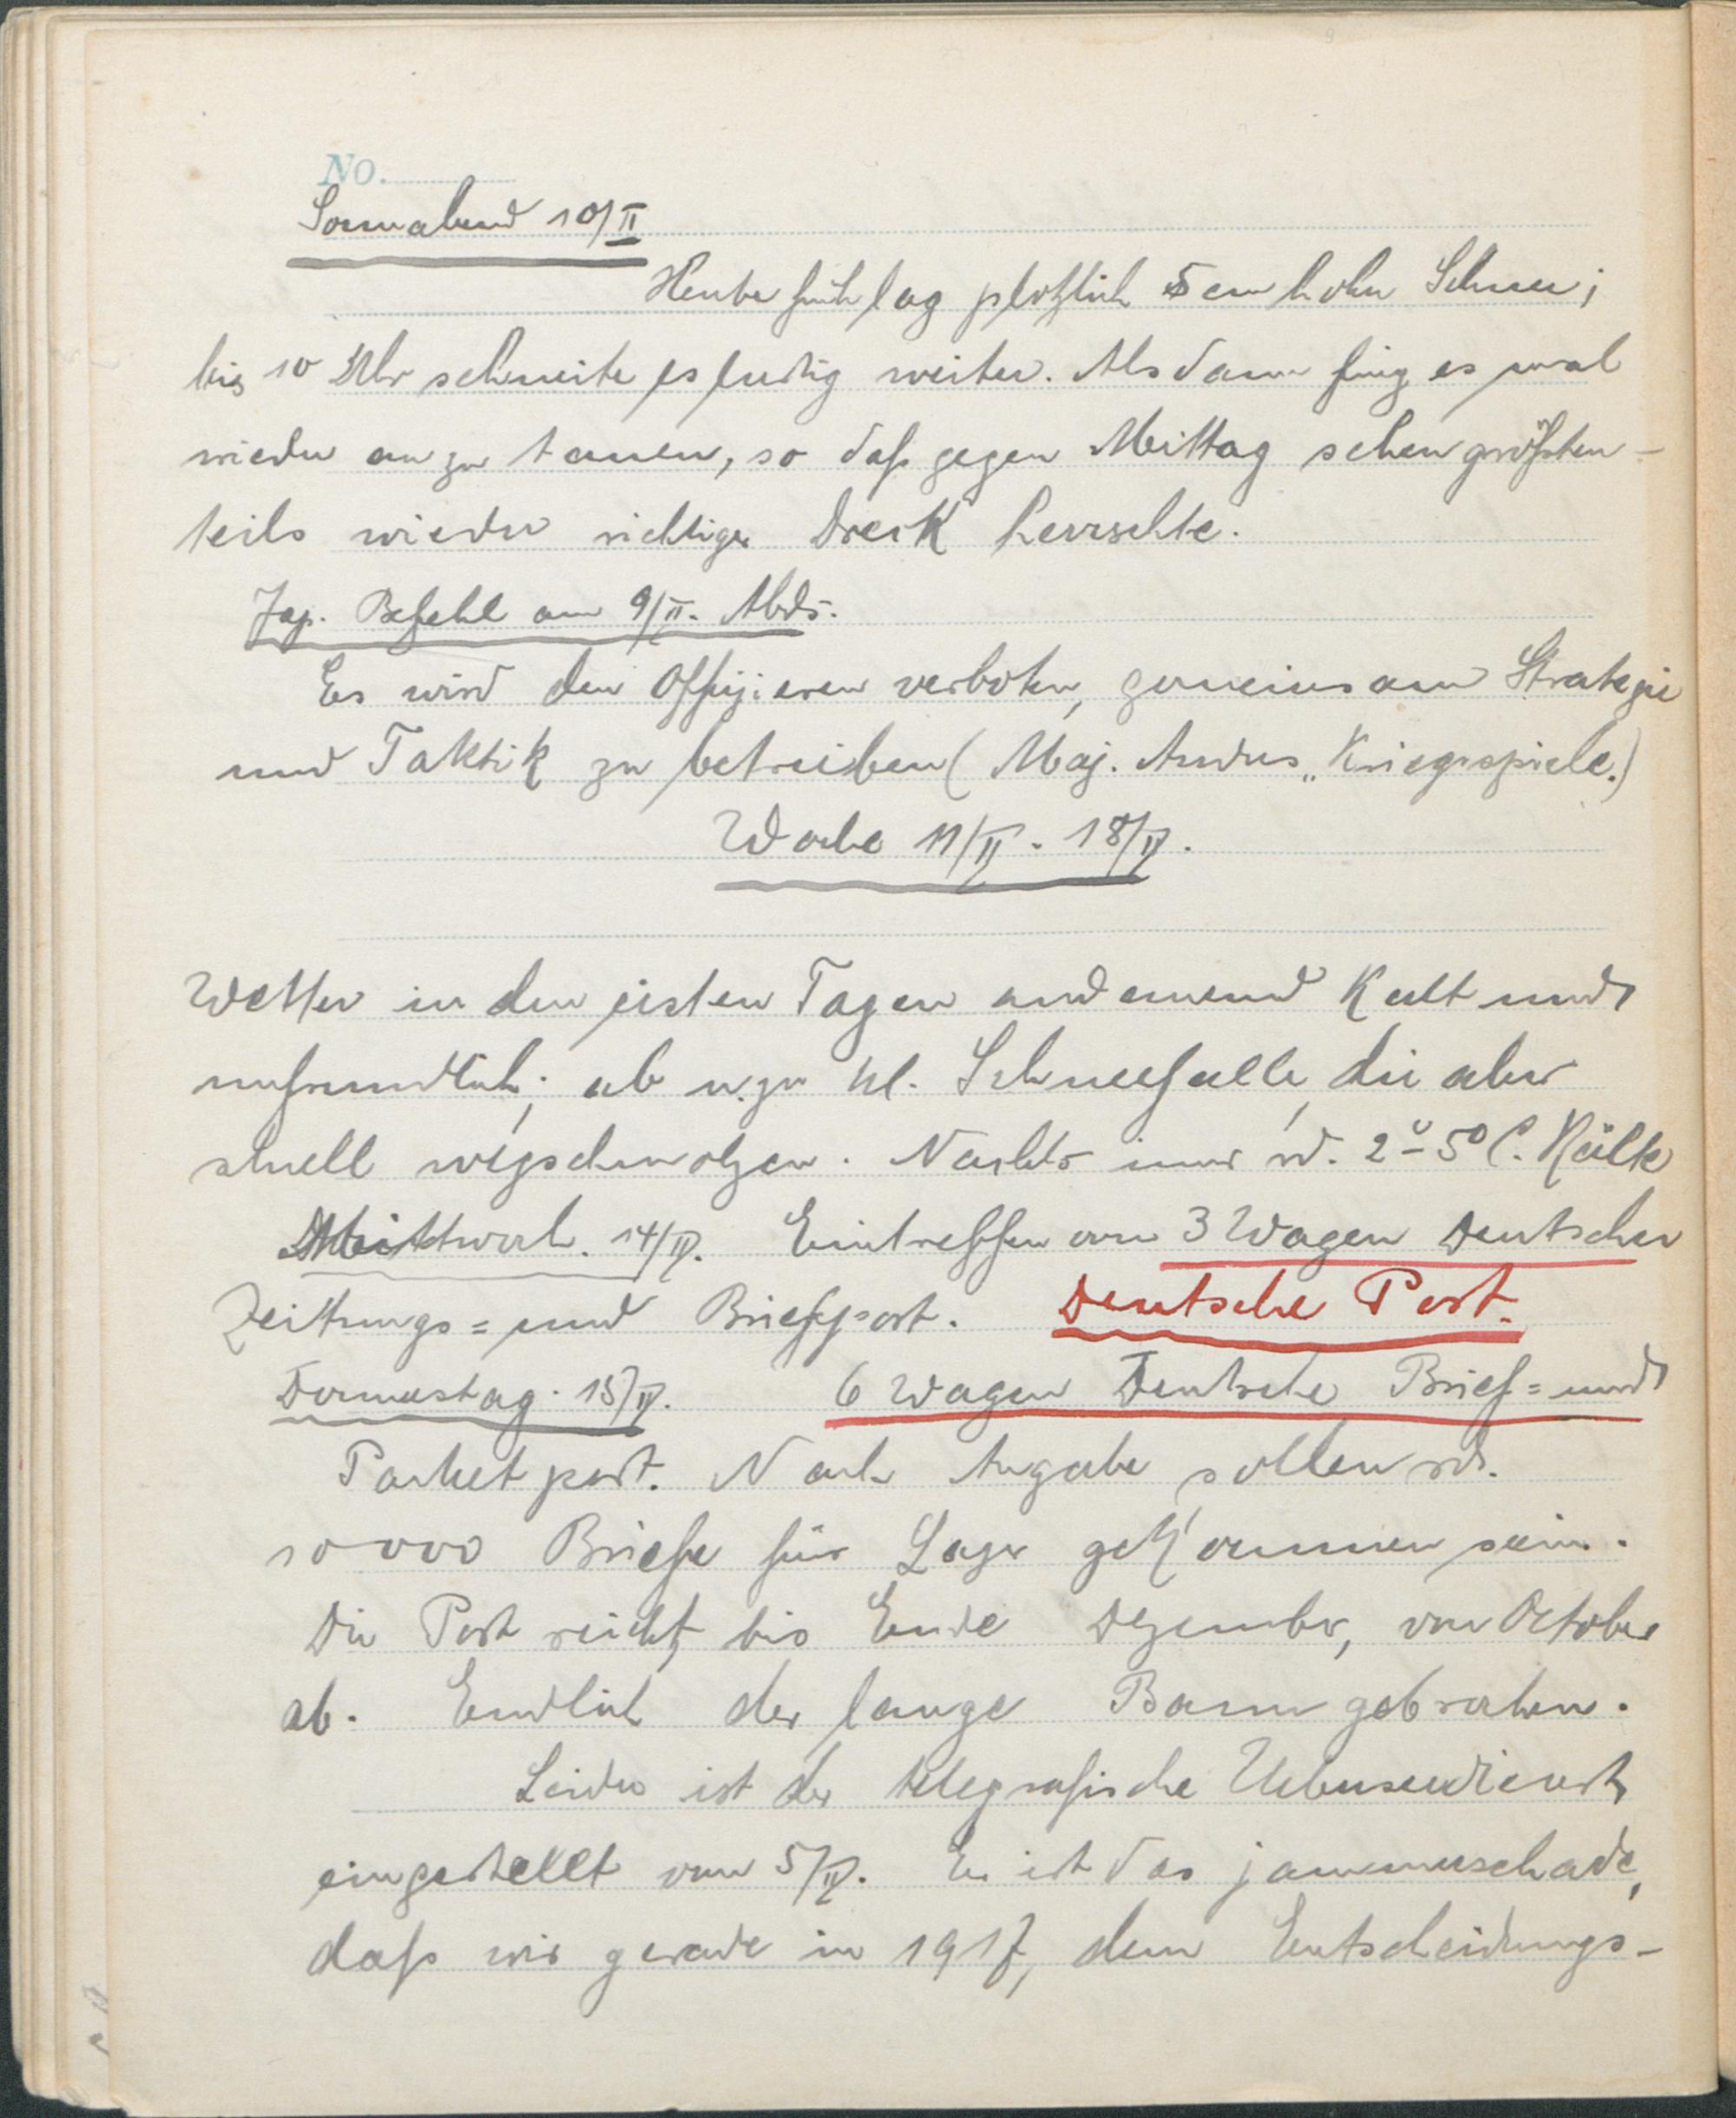 No.
Sonnabend 10/II
Heute früh lag plötzlich 5 cm hoher Schnee;
bis 10 Uhr schneite es lustig weiter. Alsdann fing es mal
wieder an zu tauen, so daß gegen Mittag schon größten-
teils wieder richtiger Dreck herrschte.
Jap. Befehl am 9/II. Abds.
Es wird den Offizieren verboten, gemeinsam Strategie
und Taktik zu betreiben (Maj. Anders „Kriegsspiele.)
Woche 11/II - 18/II.
Wetter in den ersten Tagen andauernd kalt und
unfreundlich; ab u. zu kl. Schneefälle, die aber
schnell wegschmolzen. Nachts immer rd. 2°-5° C. Kälte
Mittwoch. 14/II. Eintreffen von 3 Wagen Deutscher
Zeitungs= und Briefpost. Deutsche Post.
Donnerstag. 15/II. 6 Wagen Deutsche Brief= und
Packetpost. Nach Angabe sollen rd.
10 000 Briefe für Lager gekommen sein.
Die Post reicht bis Ende Dezember, von October
ab. Endlich der lange Bann gebrochen.
Leider ist der telegrafische Ueberseedienst
eingestellt vom 5/II. Es ist das jammerschade,
daß wir gerade in 1917, dem Entscheidungs-